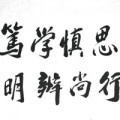 篤學慎思
明辨尚行